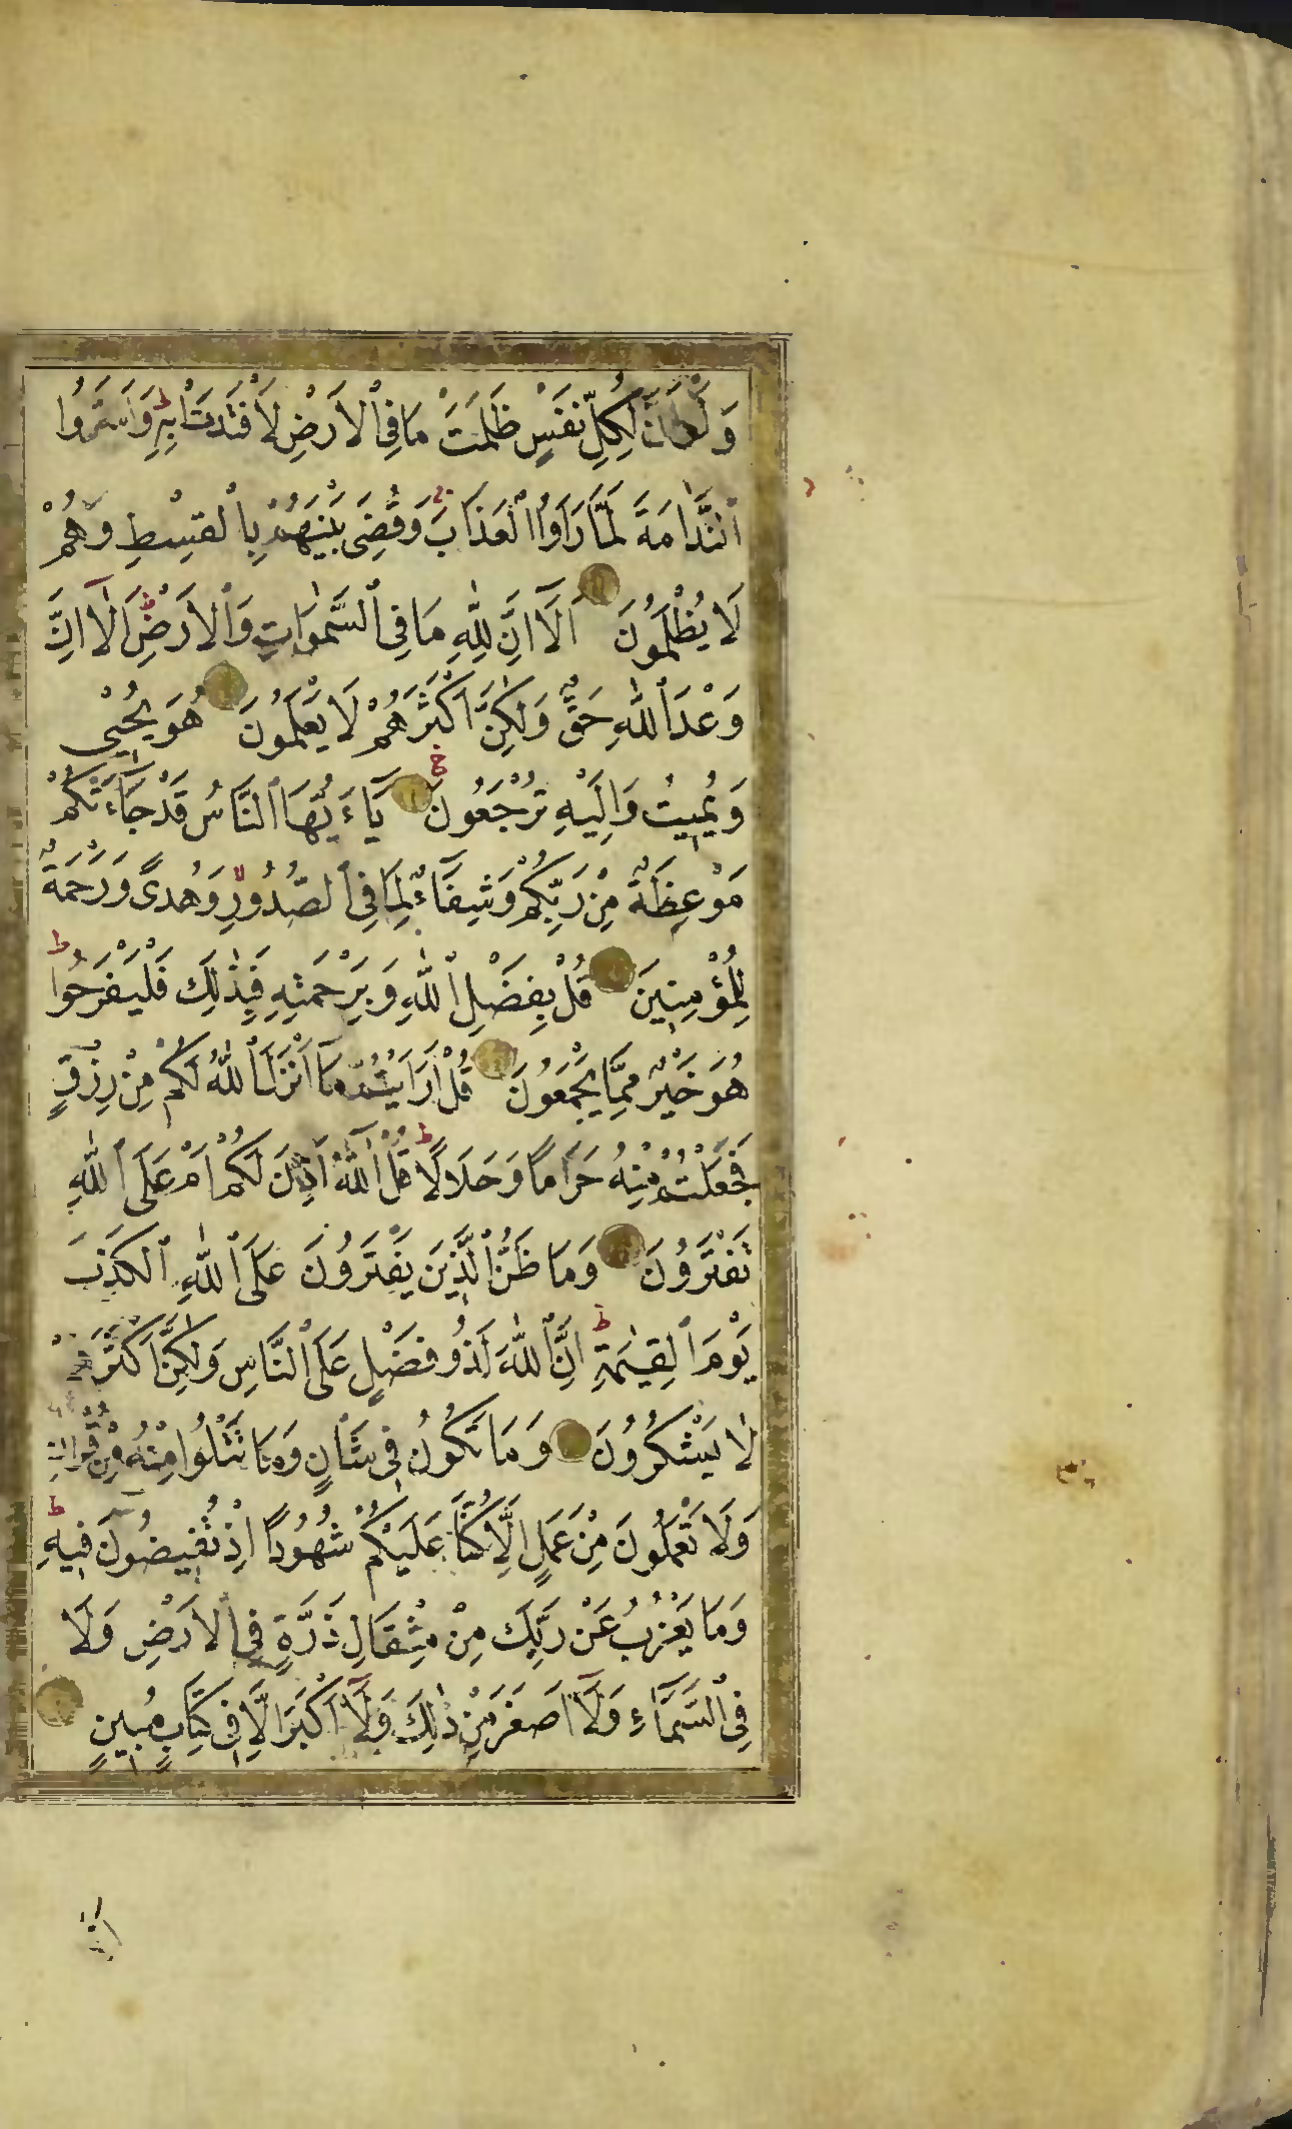 وَلَوْ اَنَّ لِكُلِّ نَفْسٍ ظَلَمَتْ مَا فِى ٱلْاَرْضِ لَافْتَدَتْ بِهِ ط وَاَسَرُّوا
ٱلنَّدَامَةَ لَمَّا رَاَوُا ٱلْعَذَابَ ج وَقُضِىَ بَيْنَهُمْ بِالْقِسْطِ وَهُمْ
لَا يُظْلَمُونَ اَلَآ اِنَّ لِلّٰهِ مَا فِى ٱلسَّمٰوَاتِ وَٱلْاَرْضِ ط اَلَآ اِنَّ
وَعْدَ ٱللّٰهِ حَقٌّ وَلٰكِنَّ اَكْثَرَهُمْ لَا يَعْلَمُونَ هُوَ يُحْيِي
وَيُمِيتُ وَاِلَيْهِ تُرْجَعُونَ يَآءَيُّهَا ٱلنَّاسُ قَدْ جَآءَتْكُمْ
مَوْعِظَةٌ مِنْ رَبِّكُمْ وَشِفَآءٌ لِمَا فِى ٱلصُّدُورِ لا وَهُدًى وَرَحْمَةٌ
لِلْمُؤْمِنِينَ قُلْ بِفَضْلِ ٱللّٰهِ وَبِرَحْمَتِهِ فَبِذٰلِكَ فَلْيَفْرَحُوا ط
هُوَ خَيْرٌ مِمَّا يَجْمَعُونَ قُلْ اَرَاَيْتُمْ مَآ اَنْزَلَ ٱللّٰهُ لَكُمْ مِنْ رِزْقٍ
فَجَعَلْتُمْ مِنْهُ حَرَامًا وَحَلَالًا ط قُلْ آللّٰهُ اَذِنَ لَكُمْ اَمْ عَلَى ٱللّٰهِ
تَفْتَرُونَ وَمَا ظَنُّ ٱلَّذِينَ يَفْتَرُونَ عَلَى ٱللّٰهِ ٱلْكَذِبَ
يَوْمَ ٱلْقِيٰمَةِ ط اِنَّ ٱللّٰهَ لَذُو فَضْلٍ عَلَى ٱلنَّاسِ وَلٰكِنَّ اَكْثَرَهُمْ
لَا يَشْكُرُونَ وَمَا تَكُونُ فِى شَاْنٍ وَمَا تَتْلُوا مِنْهُ مِنْ قُرْاٰنٍ
وَلَا تَعْمَلُونَ مِنْ عَمَلٍ اِلَّا كُنَّا عَلَيْكُمْ شُهُودًا اِذْ تُفِيضُونَ فِيهِ ط
وَمَا يَعْزُبُ عَنْ رَبِّكَ مِنْ مِثْقَالِ ذَرَّةٍ فِى ٱلْاَرْضِ وَلَا
فِى ٱلسَّمَآءِ وَلَآ اَصْغَرَ مِنْ ذٰلِكَ وَلَآ اَكْبَرَ اِلَّا فِى كِتَابٍ مُبِينٍ